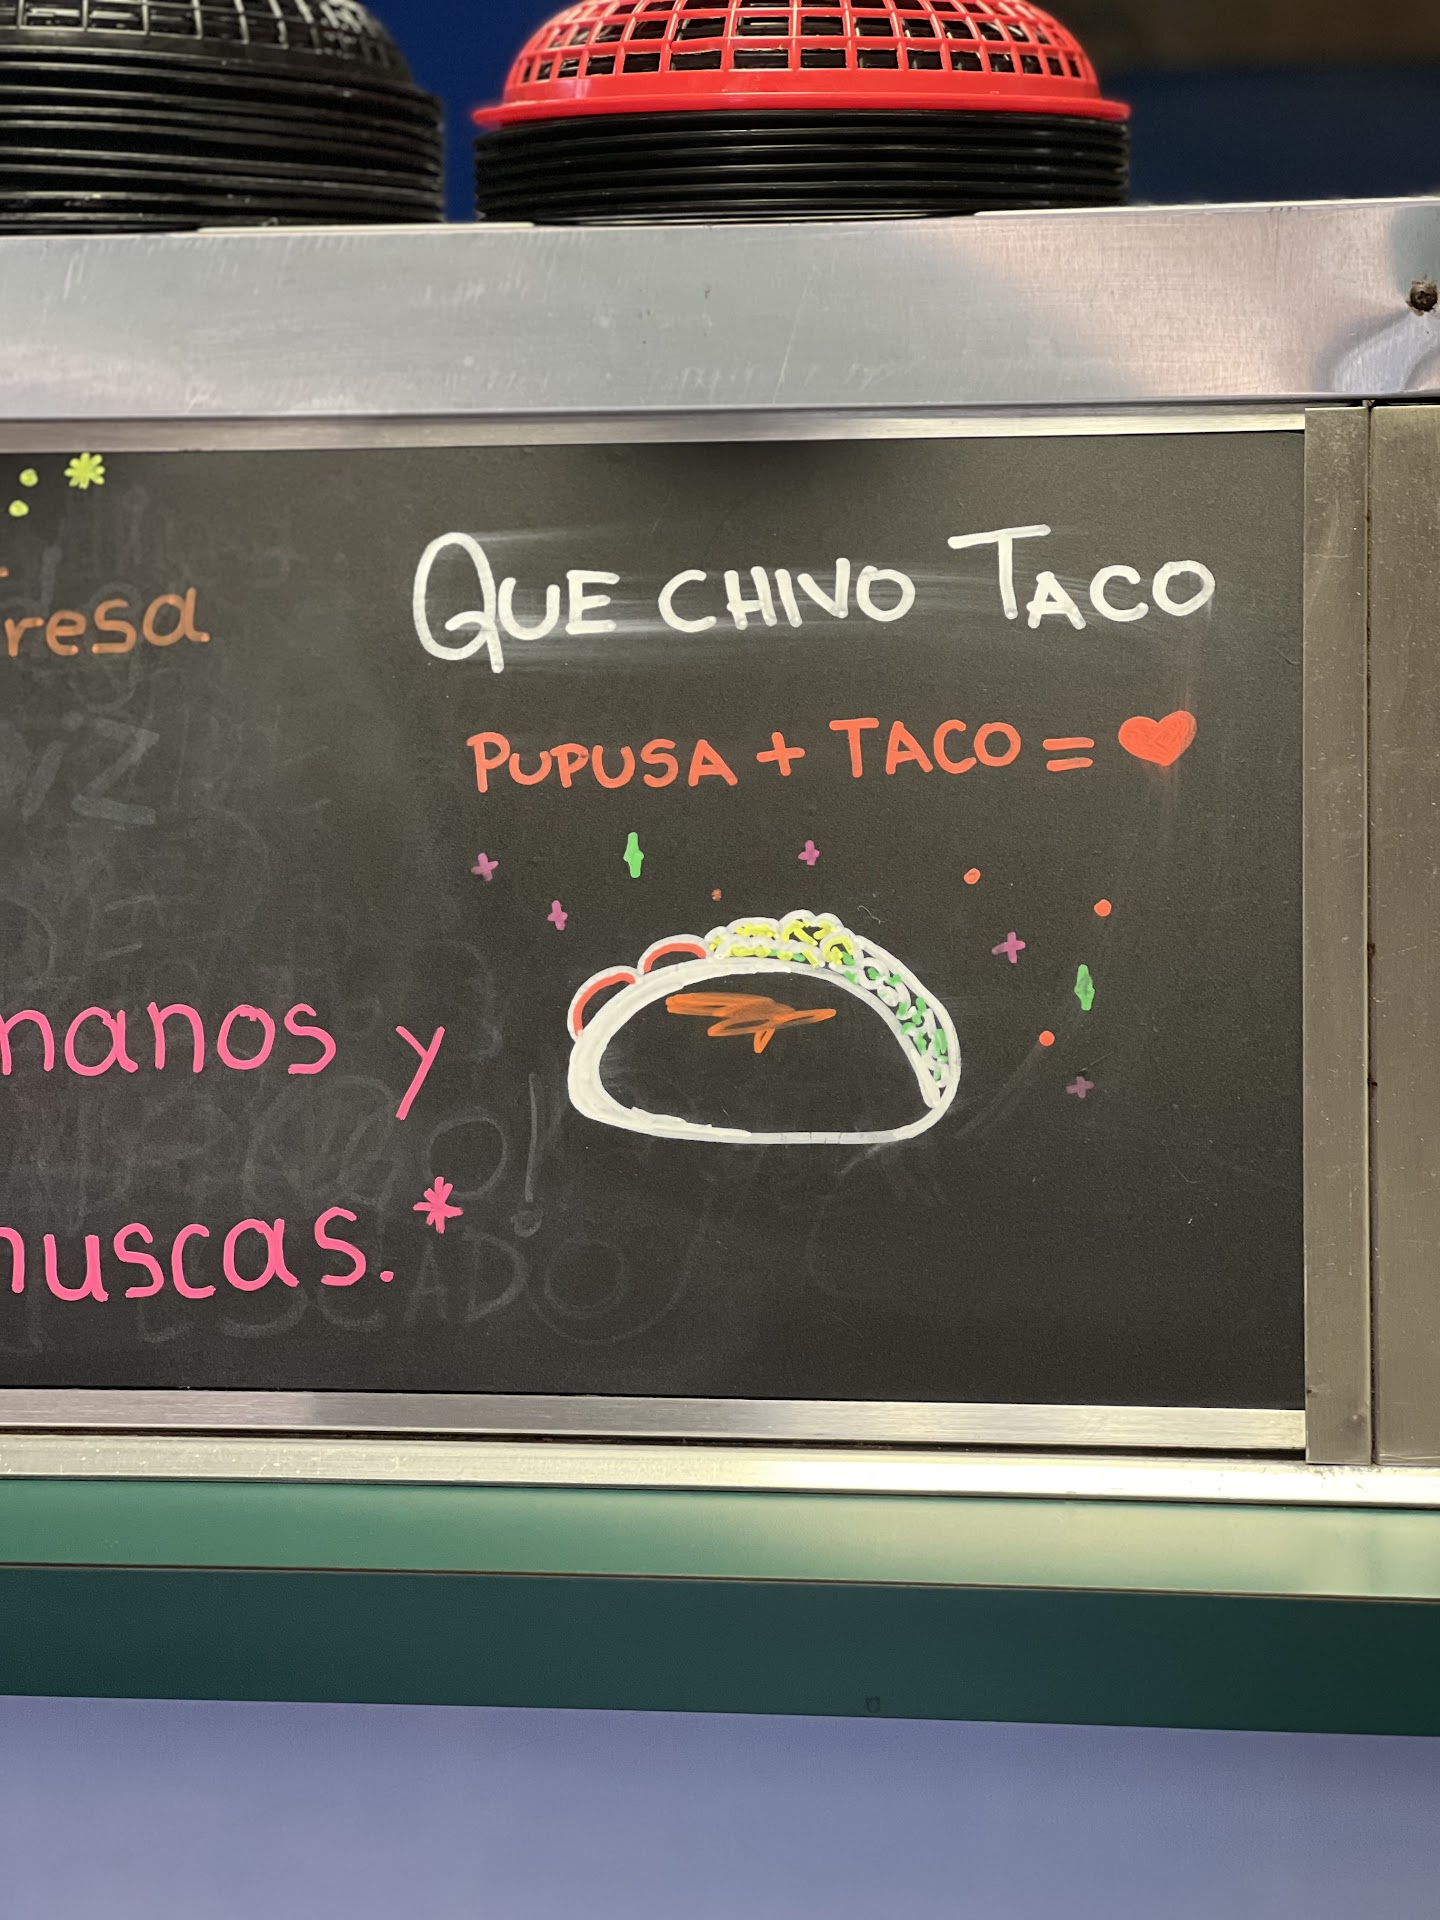 QUE CHIVO TACO
PUPUSA + TACO = ♥
resa
manos y
uscas.*